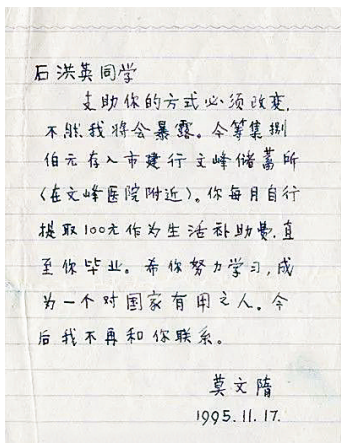 石洪英同学
支助你的方式必须改变,
不然我将会暴露。今筹集捌
佰元存入市建行文峰储蓄所
(在文峰医院附近)。你每月自行
提取100元作为生活补助费.直
至你毕业。希你努力学习,成
为一个对国家有用之人。今
后我不再和你联系。
莫文隋
1995.11.17.